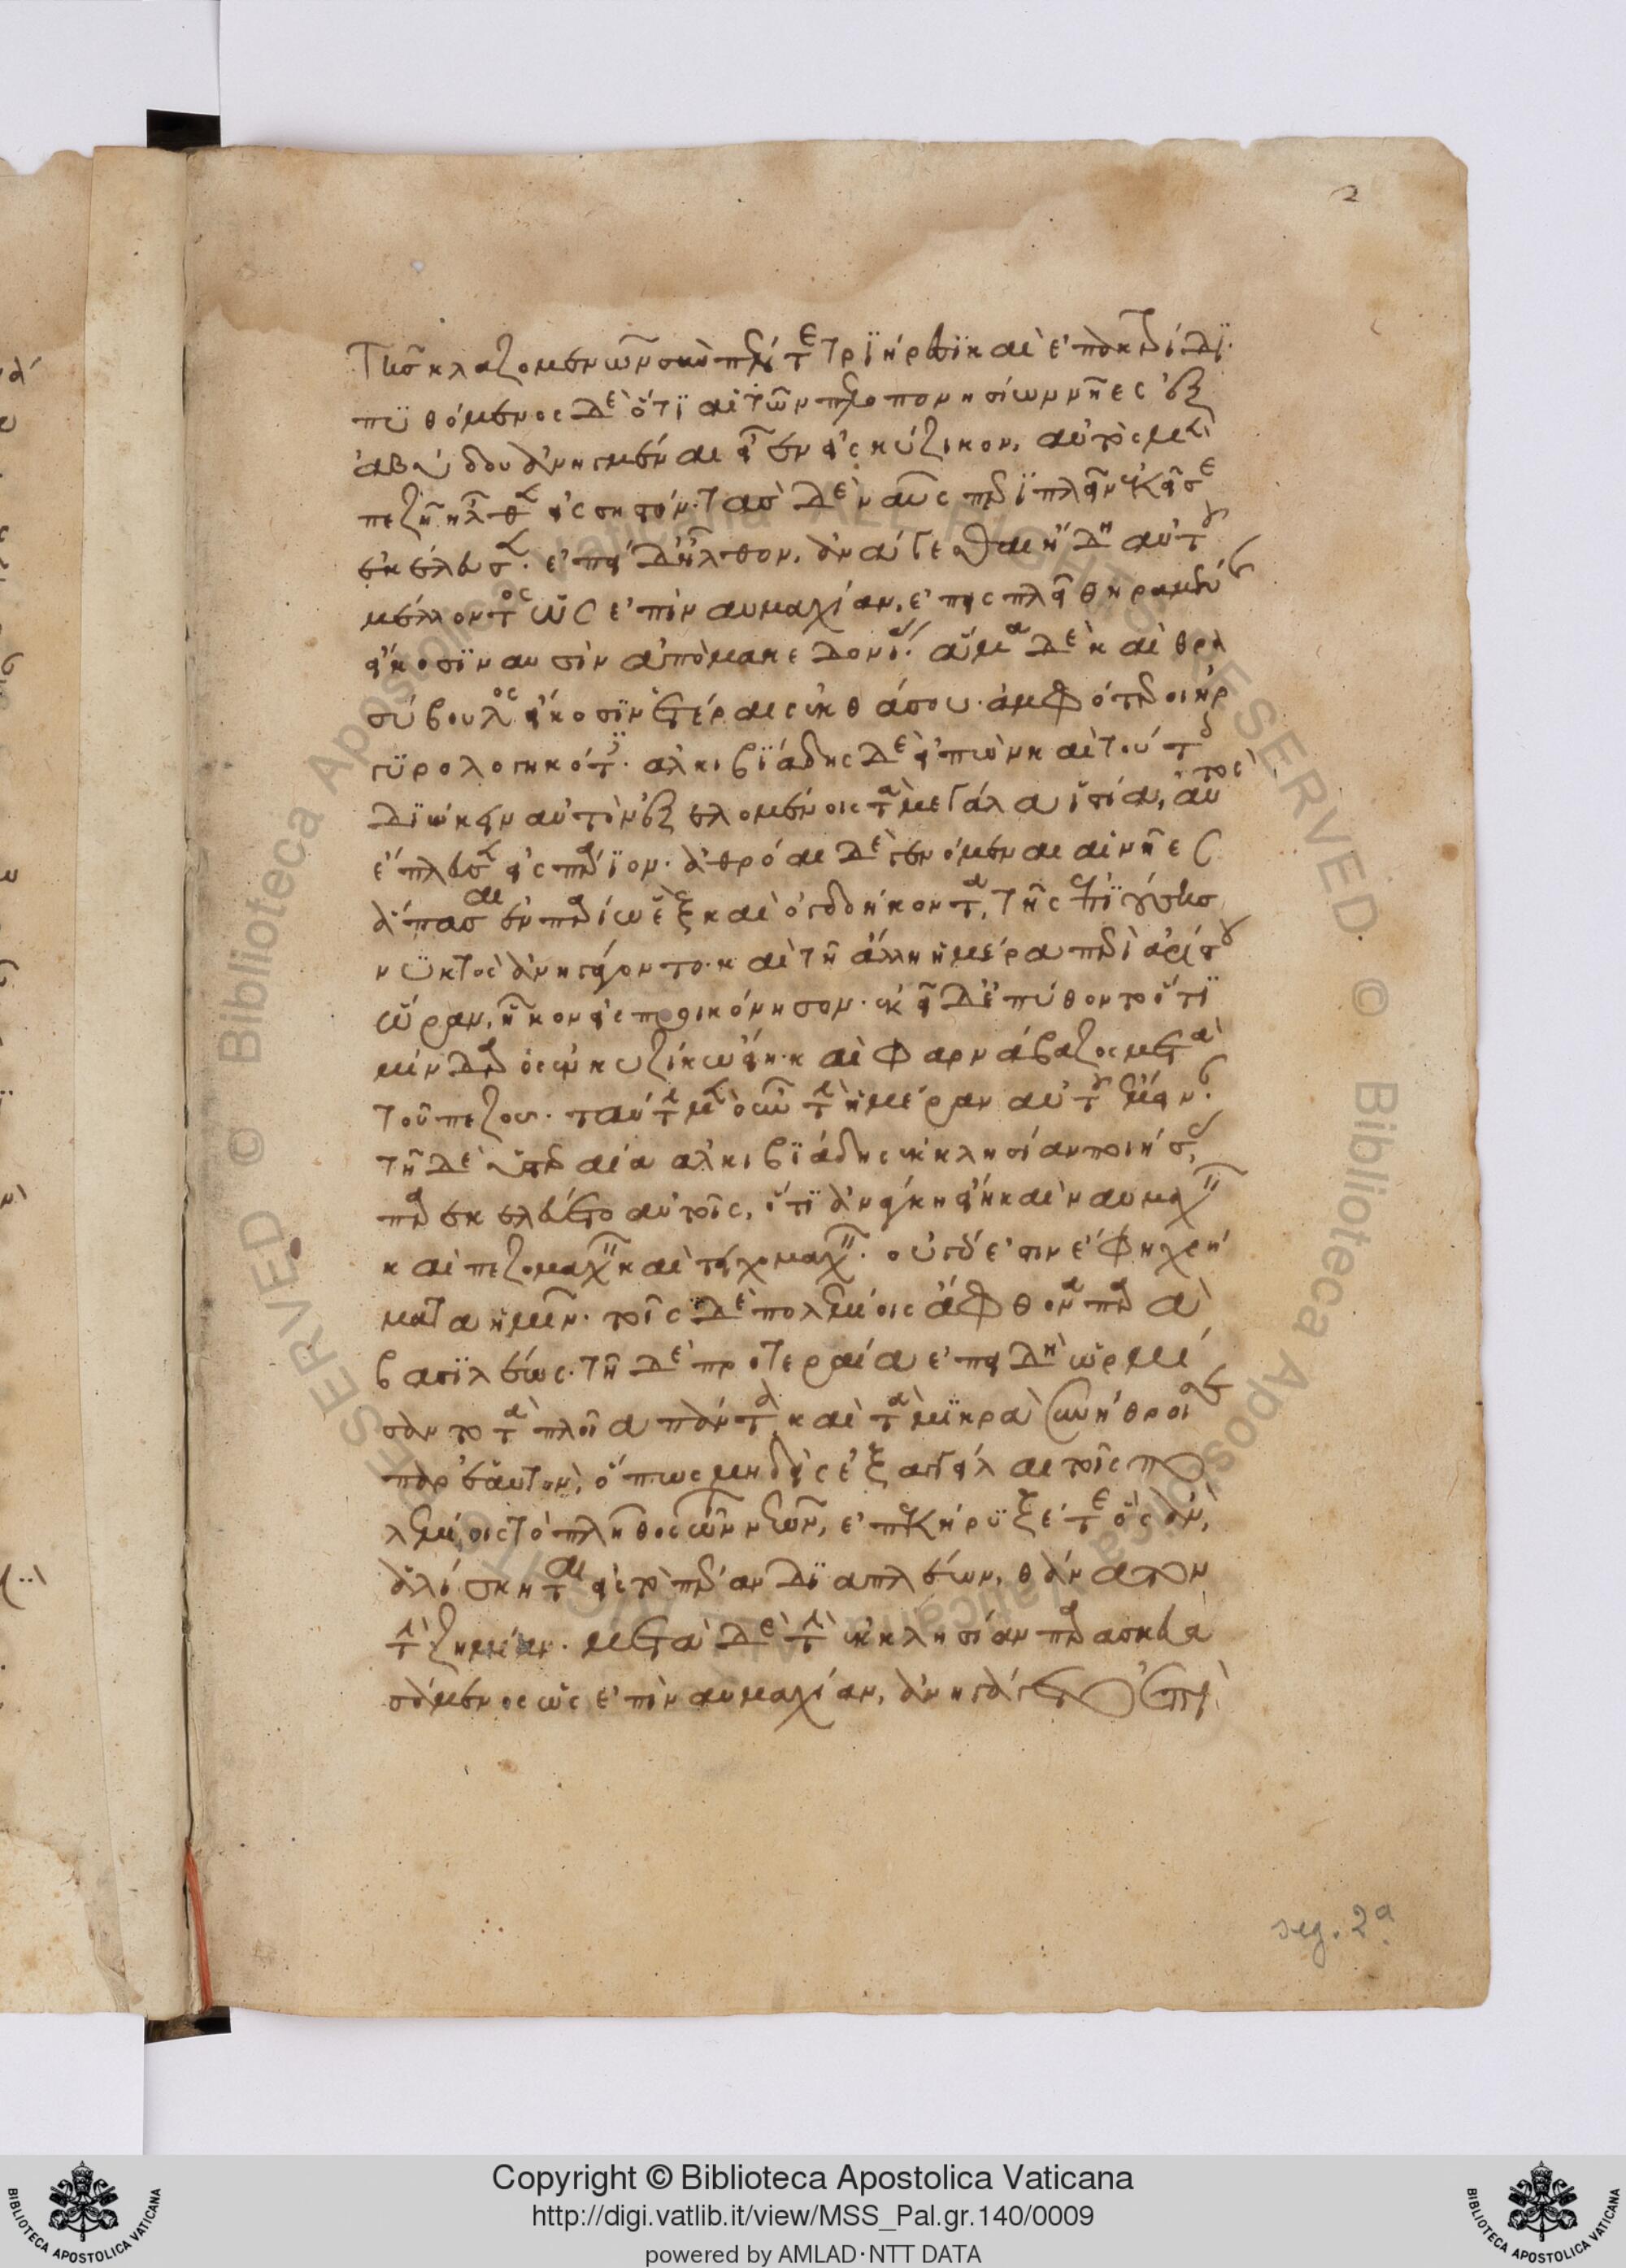 2
τῶν κλαζομενῶν σὺν πέντε τριήρεσι καὶ ἐπακτρίδι·
πυθόμενος δὲ ὅτι αἱ τῶν πελοποννησίων νῆες ἐξ
ἀβύδου ἀνηγμέναι εἶεν εἰς κύζικον, αὐτὸς μὲν
πεζῇ ἦλθεν εἰς σηστόν. τὰς δὲ ναῦς περιπλεῖν ἐκεῖσε
ἐκέλευσεν. ἐπεὶ δ' ἦλθον, ἀνάγεσθαι ἤδη αὐτοῦ
μέλλοντος ὡς ἐπὶ ναυμαχίαν, ἐπεισπλεῖ θηραμένης
εἴκοσιν ναυσὶν ἀπὸ μακεδονίας. ἅμα δὲ καὶ θρα
σύβουλος εἴκοσιν ἑτέραις ἐκ θάσου. ἀμφότεροι ἠρ
γυρολογηκότες. ἀλκιβιάδης δὲ εἰπὼν καὶ τούτοις
διώκειν αὐτὸν ἐξελομένοις τὰ μεγάλα ἱστία, αὐτὸς
ἔπλευσεν εἰς πάριον. ἀθρόαι δὲ γενόμεναι αἱ νῆες
ἅπασαι ἐν παρίῳ ἓξ καὶ ὀγδοήκοντα, τῆς ἐπιγούσης
νυκτὸς ἀνηγάγοντο. καὶ τῇ ἄλλῃ ἡμέρα περὶ ἀρίστου
ὥραν, ἧκον εἰς προικόνησον. ἐκεῖ δ' ἐπύθοντο ὅτι
μίνδαρος ἐν κυζίκω εἴη. καὶ φαρνάβαζος μετὰ
τοῦ πεζοῦ. ταύτην μὲν οὖν τὴν ἡμέραν αὐτοῦ ἔμειναν.
τῇ δὲ ὑστεραία ἀλκιβιάδης ἐκκλησίαν ποιήσας,
παρεκελεύετο αὐτοῖς, ὅτι ἀνάγκη εἴη καὶ ναυμαχεῖν
καὶ πεζομαχεῖν καὶ τειχομαχεῖν. οὐ γὰρ ἔστιν ἔφη χρή
ματα ἡμῖν. τοῖς δὲ πολεμίοις ἄφθονα παρὰ
βασιλέως. τῇ δὲ προτεραία ἐπειδὴ ὡρμί
σαντο τὰ πλοῖα πάντα καὶ τὰ μικρὰ συνήθροισε
παρ' ἑαυτὸν, ὅπως μηδεὶς ἐξαγγείλαι τοῖς πο
λεμίοις τὸ πλῆθος τῶν νεῶν, ἐπεκήρυξέ τε ὃς ἂν,
ἁλίσκηται εἰς τὸ πέραν διαπλέων, θάνατον
τὴν ζημίαν. μετὰ δὲ τὴν ἐκκλησίαν παρασκευα
σάμενος ὡς ἐπὶ ναυμαχίαν, ἀνηγάγετο ἐπὶ
seg. 2a
Copyright © Biblioteca Apostolica Vaticana
http://digi.vatlib.it/view/MSS_Pal.gr.140/0009
powered by AMLAD·NTT DATA